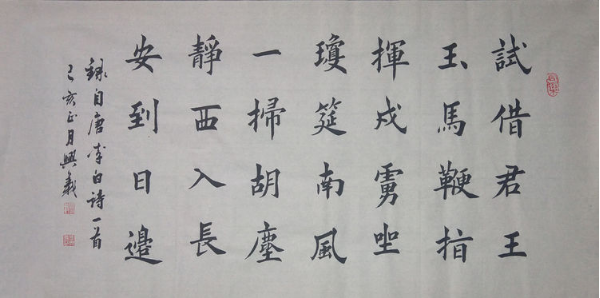 試借君王
玉馬鞭指
揮戎虜坐
瓊筵南風
一掃胡塵
靜西入長
安到日邊
錄自唐李白詩一首
己亥正月興義